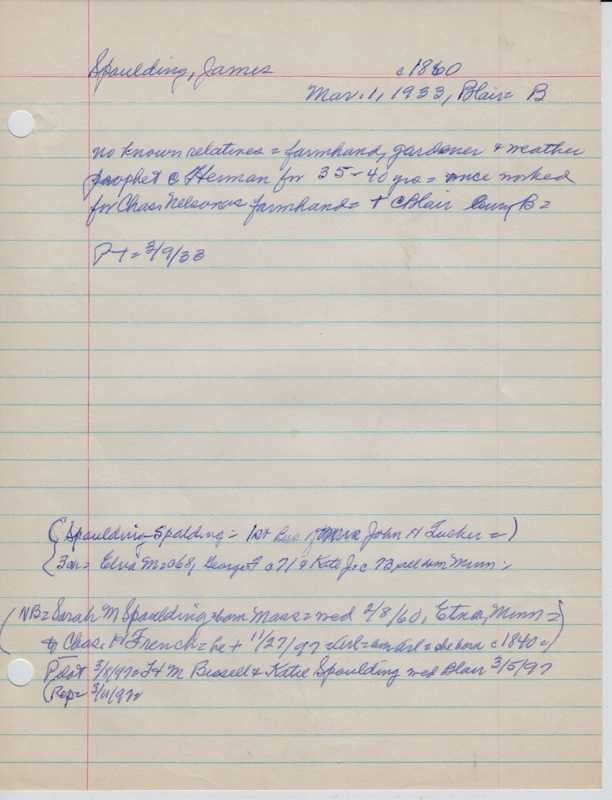 Spaulding, James c1860
Mar. 1, 1933, Blair= B
no known relatives = farmhand, gardener & weather
prophet c Herman for 35-40 yrs = once worked
for Chas. Nelson as farmhand = + c Blair bury B =
P-t = 3/9/33
(Spaulding-Spalding = 1st hus Mrs John H Tucker =)
3 ch = Elvia M = c68, George F c71 & Kate J = c73, all born Minn =
(NB = Sarah M Spaulding = born Mass = wed 2/8/60, Etna, Minn =
to Chas. H French = he + 11/27/97 = she born c1840 =)
Pilot 3/8/97 = H M Bissell & Katie Spaulding wed Blair 3/5/97
(Rep = 3/11/97=